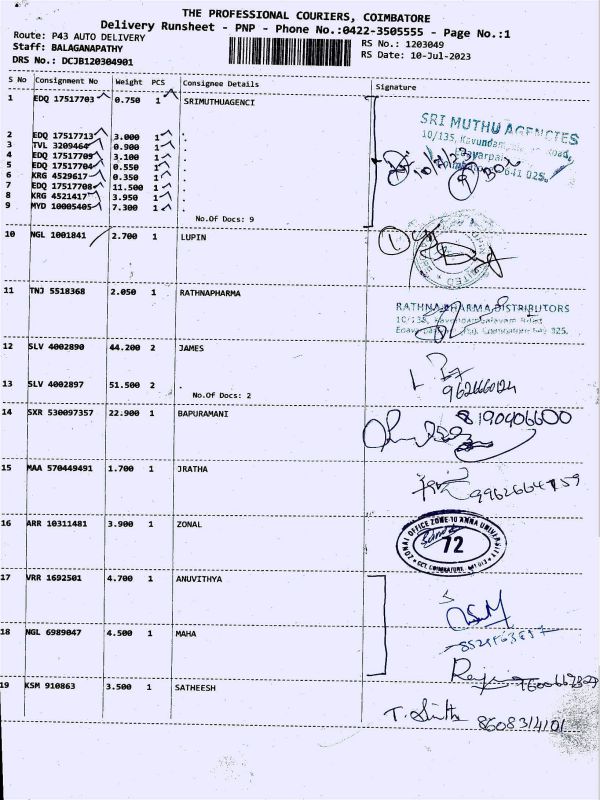 THE PROFESSIONAL COURIERS, COIMBATORE
Delivery Runsheet - PNP - Phone No.:0422-3505555 - Page No.:1
Route: P43 AUTO DELIVERY
Staff: BALAGANAPATHY
RS No.: 1203049
DRS No.: DCJB120304901
RS Date: 10-Jul-2023
S No Consignment No Weight PCS Consignee Details Signature
1 EDQ 17517703 0.750 1 SRIMUTHUAGENCI
SRI MUTHU AGENCIES
2 EDQ 17517713 3.000 1 .
10/135, Kavundam Road,
3 TVL 3209464 0.900 1 .
4 EDQ 17517705 3.100 1 .
5 EDQ 17517704 0.550 1 .
641 025.
6 KRG 4529617 0.350 1 .
7 EDQ 17517708 11.500 1 .
8 KRG 4521417 3.950 1 .
9 MYD 10005405 7.300 1 .
No.Of Docs: 9
10 NGL 1001841 2.700 1 LUPIN
11 TNJ 5518368 2.050 1 RATHNAPHARMA
RATHNA PHARMA DISTRIBUTORS
12 SLV 4002890 44.200 2 JAMES
13 SLV 4002897 51.500 2 .
No.Of Docs: 2
14 SXR 530097357 22.900 1 BAPURAMANI
8190406600
15 MAA 570449491 1.700 1 JRATHA
16 ARR 10311481 3.900 1 ZONAL
ZONAL OFFICE ZONE-10 ANNA UNIVERSITY
72
17 VRR 1692501 4.700 1 ANUVITHYA
18 NGL 6989047 4.500 1 MAHA
19 KSM 910863 3.500 1 SATHEESH
8608314101